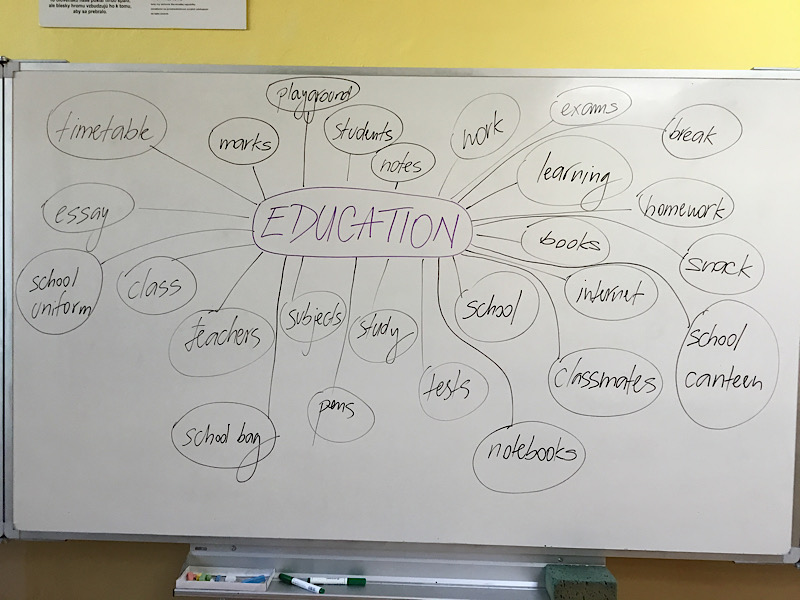 ale blesky hromu vzbudzujú ho k tomu,
aby sa prebralo.
playground
timetable
marks
students
notes
work
exams
break
learning
essay
EDUCATION
homework
books
snack
school
uniform
class
teachers
subjects
study
school
internet
school
canteen
pens
tests
classmates
school bag
notebooks